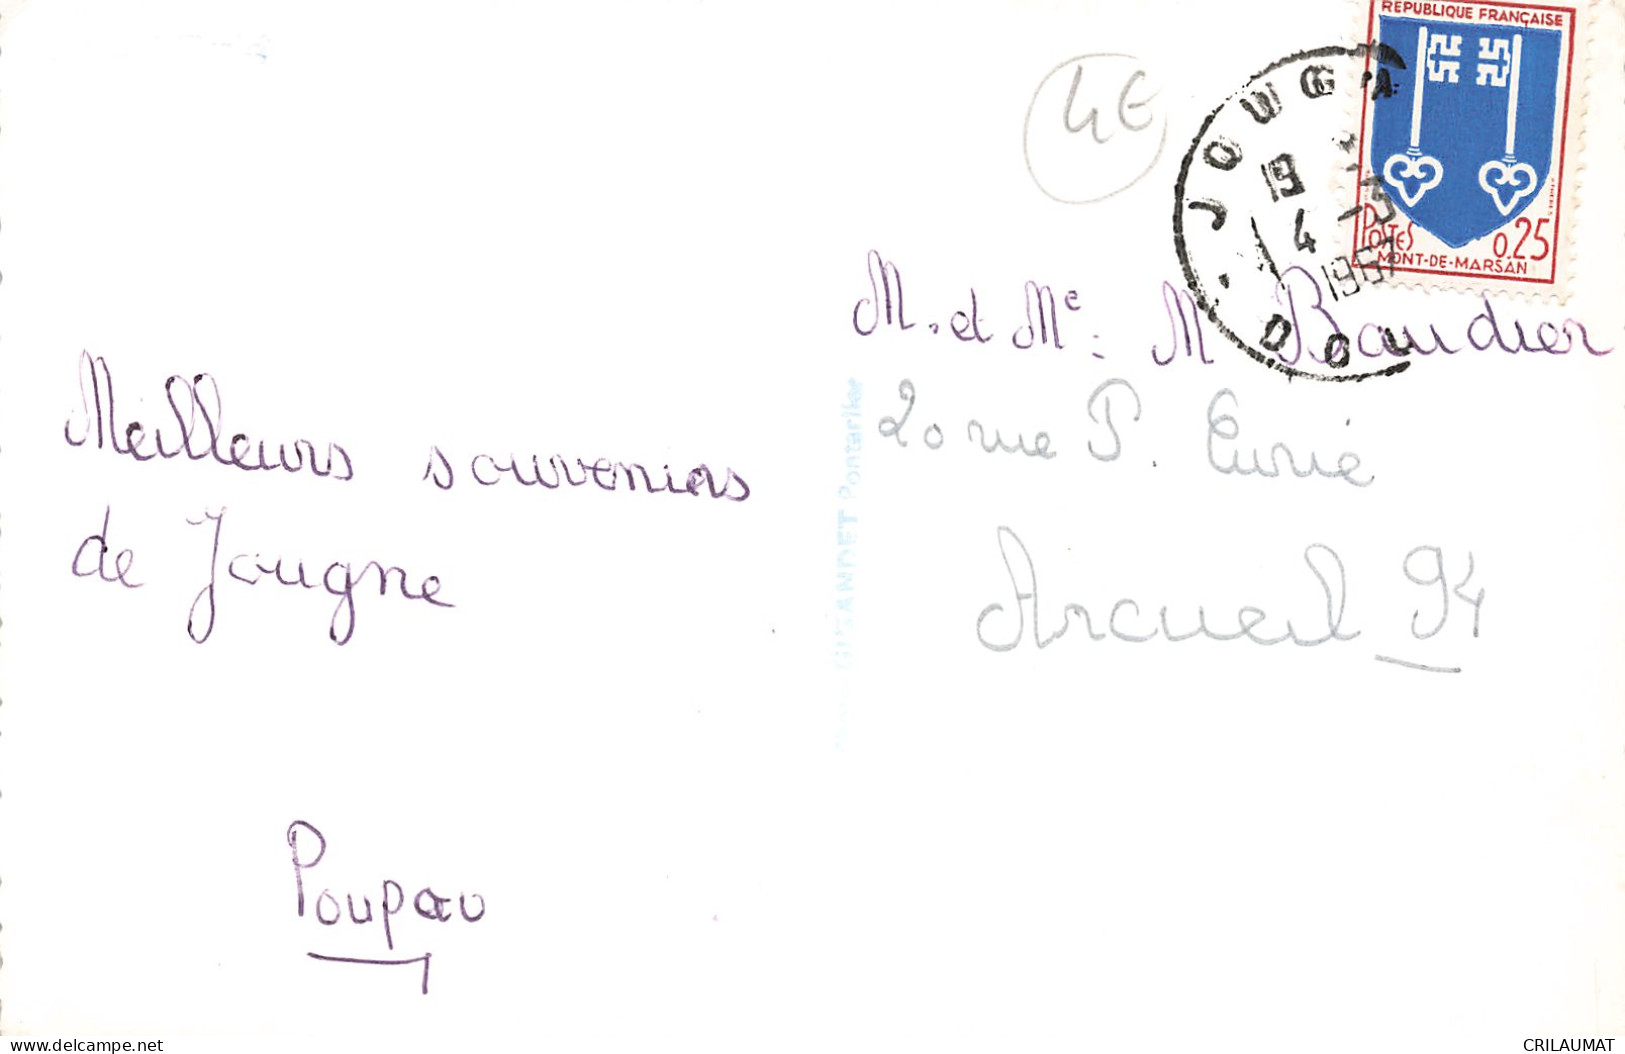 4€
REPUBLIQUE FRANÇAISE
POSTES 0.25
MONT-DE-MARSAN
JOUGNE
19
4
1967
DOU
M. et Me. M Baudier
20 rue P. Curie
Arcueil 94
Meilleurs souvenirs
de Jougne
Poupau
Pontarlier
delcampe.net
CRILAUMAT